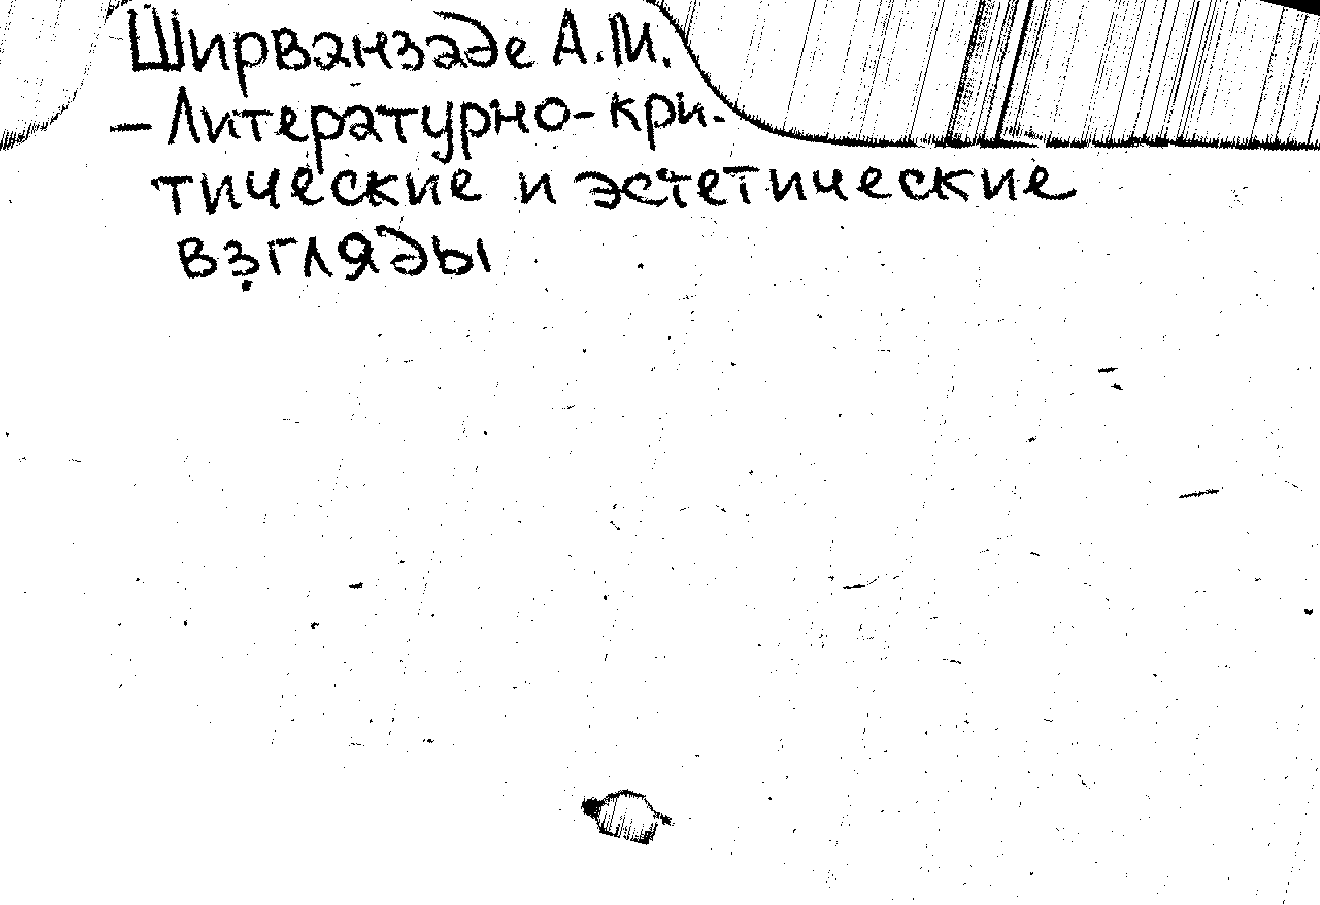 Ширванзаде А.М.
– Литературно-кри.
тические и эстетические
взгляды